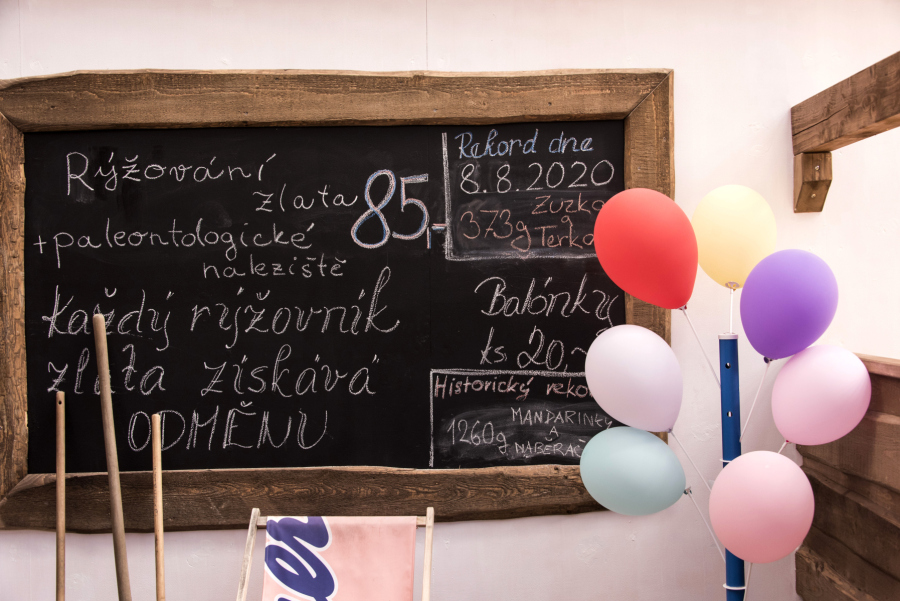 Rýžování
zlata 85,-
+paleontologické
naleziště
každý rýžovník
zlata získává
ODMĚNU
Rekord dne
8.8.2020
373g Zuzka
Terka
Balónky
ks. 20,-
Historický reko
1260g MANDARINKY
A
NABERAČ